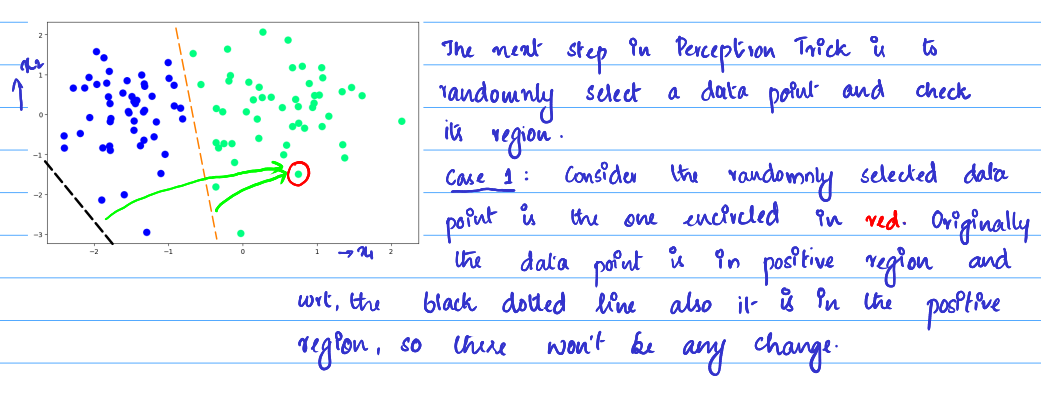 2
1
0
−1
−2
−3
x2
−2
−1
0
1
2
→ x1
The next step in Perception Trick is to
randomnly select a data point and check
its region.
Case 1 : Consider the randomnly selected data
point is the one encircled in red. Originally
the data point is in positive region and
wrt, the black dotted line also it is in the positive
region, so there won't be any change.